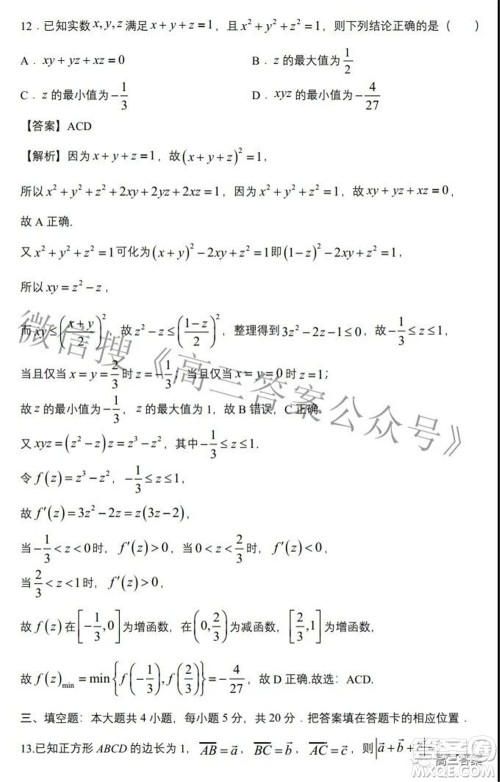 12．已知实数 x, y, z 满足 x + y + z = 1，且 x² + y² + z² = 1，则下列结论正确的是（　　）
A．xy + yz + xz = 0　　B．z 的最大值为 1/2
C．z 的最小值为 -1/3　　D．xyz 的最小值为 -4/27
【答案】ACD
【解析】因为 x + y + z = 1，故 (x + y + z)² = 1，
所以 x² + y² + z² + 2xy + 2yz + 2xz = 1，因为 x² + y² + z² = 1，故 xy + yz + xz = 0，
故 A 正确.
又 x² + y² + z² = 1 可化为 (x + y)² - 2xy + z² = 1 即 (1 - z)² - 2xy + z² = 1，
所以 xy = z² - z，
而 xy ≤ ((x + y)/2)²，故 z² - z ≤ ((1 - z)/2)²，整理得到 3z² - 2z - 1 ≤ 0，故 -1/3 ≤ z ≤ 1，
当且仅当 x = y = 2/3 时 z = -1/3；当且仅当 x = y = 0 时 z = 1；
故 z 的最小值为 -1/3，z 的最大值为 1，故 B 错误，C 正确.
又 xyz = (z² - z)z = z³ - z²，其中 -1/3 ≤ z ≤ 1.
令 f(z) = z³ - z²，-1/3 ≤ z ≤ 1，
故 f′(z) = 3z² - 2z = z(3z - 2)，
当 -1/3 < z < 0 时，f′(z) > 0，当 0 < z < 2/3 时，f′(z) < 0，
当 2/3 < z < 1 时，f′(z) > 0，
故 f(z) 在 [-1/3, 0] 为增函数，在 (0, 2/3) 为减函数，[2/3, 1] 为增函数，
故 f(z)min = min{f(-1/3), f(2/3)} = -4/27，故 D 正确.故选：ACD.
三、填空题：本大题共 4 小题，每小题 5 分，共 20 分．把答案填在答题卡的相应位置．
13.已知正方形 ABCD 的边长为 1，AB = a，BC = b，AC = c，则 |a + b +
微信搜《高三答案公众号》
高三答案